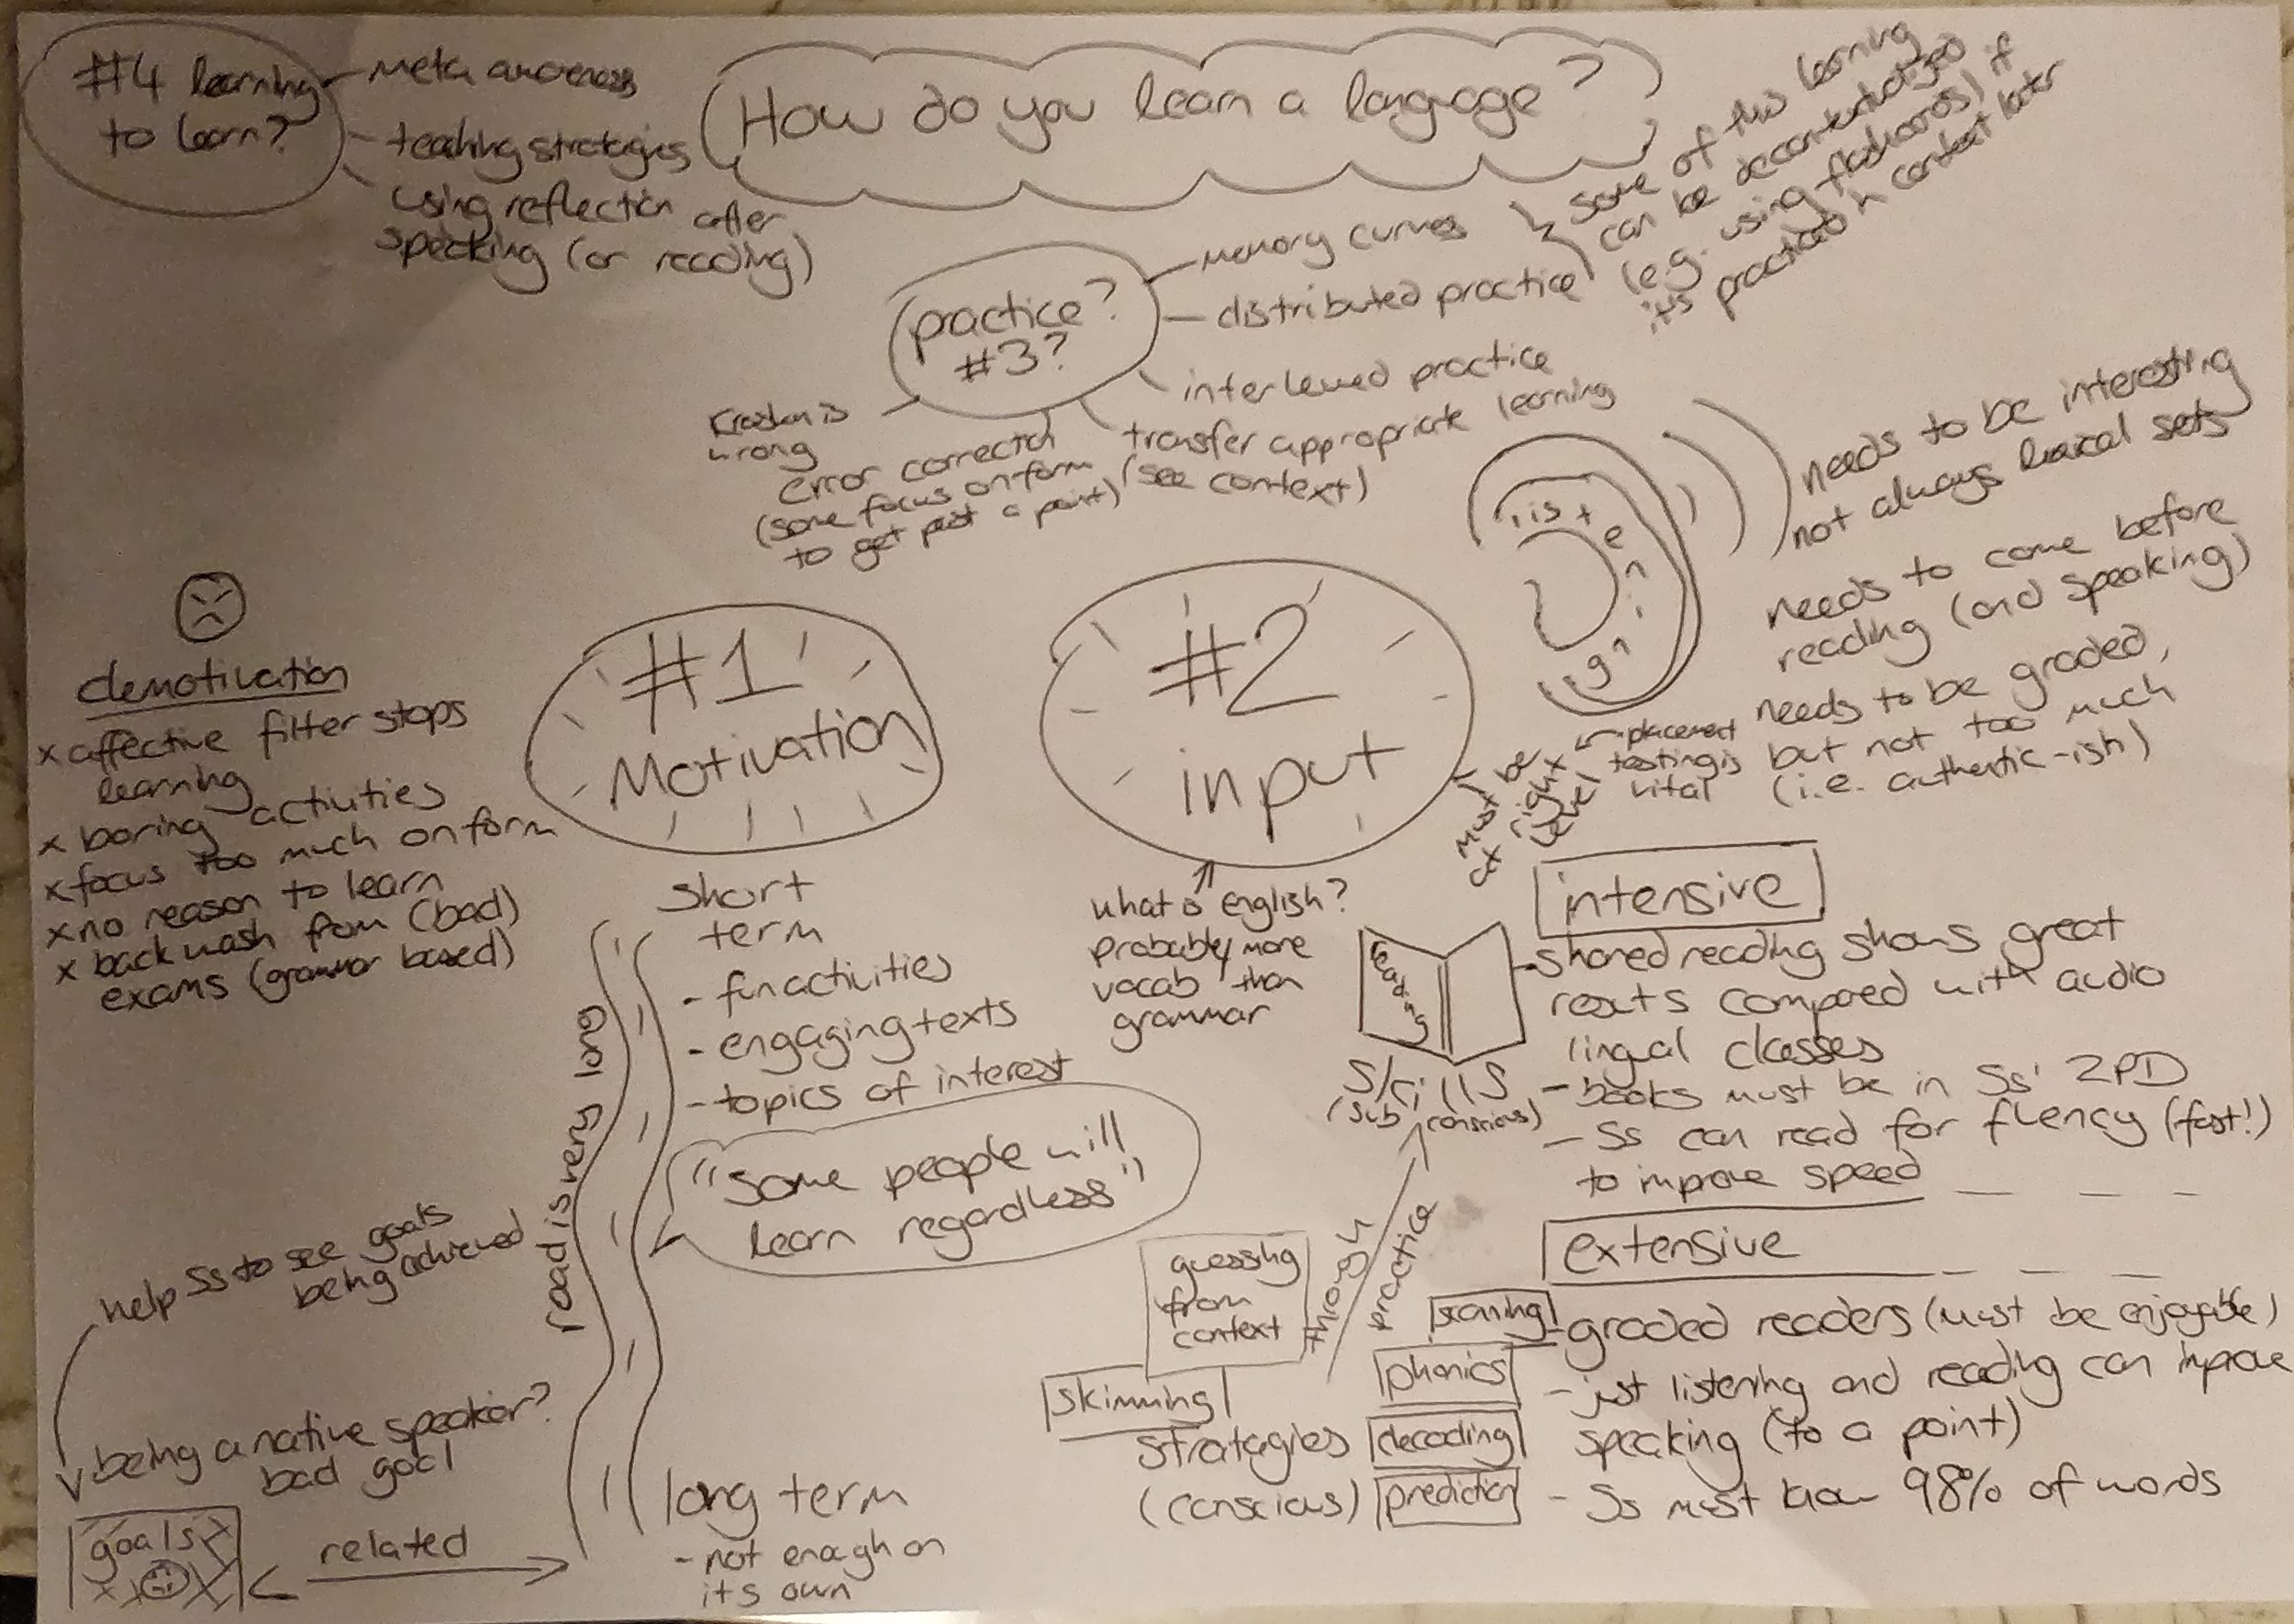 How do you learn a language?
#4 learning
to learn?
meta awareness
teaching strategies
using reflection after
speaking (or reading)
practice?
#3?
memory curves
distributed practice
some of this learning
can be decontextualized
(e.g. using flashcards) if
it's practiced in context later
interleaved practice
transfer appropriate learning
(see context)
error correction
(some focus on form
to get past a point)
Krashen is
wrong
#1
Motivation
demotivation
x affective filter stops
learning
x boring activities
x focus too much on form
x no reason to learn
x backwash from (bad)
exams (grammar based)
short
term
- fun activities
- engaging texts
- topics of interest
"Some people will
learn regardless"
road is very long
long term
- not enough on
its own
help Ss to see goals
being achieved
being a native speaker?
bad goal
goals
related
#2
input
what is english?
probably more
vocab than
grammar
must be
at right
level
placement
testing is
vital
listening
needs to be interesting
not always lexical sets
needs to come before
reading (and speaking)
needs to be graded,
but not too much
(i.e. authentic-ish)
reading
intensive
- shared reading shows great
results compared with audio
lingual classes
- books must be in Ss' ZPD
- Ss can read for fluency (fast!)
to improve speed
extensive
- graded readers (must be enjoyable)
- just listening and reading can improve
speaking (to a point)
- Ss must know 98% of words
skills
(sub conscious)
through
practice
guessing
from
context
scanning
phonics
skimming
decoding
prediction
stratagies
(conscious)